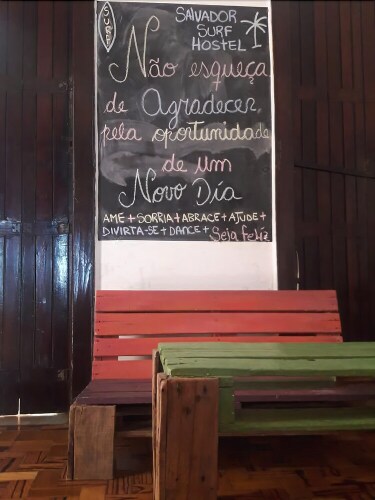 SURF
SALVADOR
SURF
HOSTEL
Não esqueça
de Agradecer,
pela oportunidade
de um
Novo Dia
AME+SORRIA+ABRACE+AJUDE+
DIVIRTA-SE+DANCE+ Seja feliz